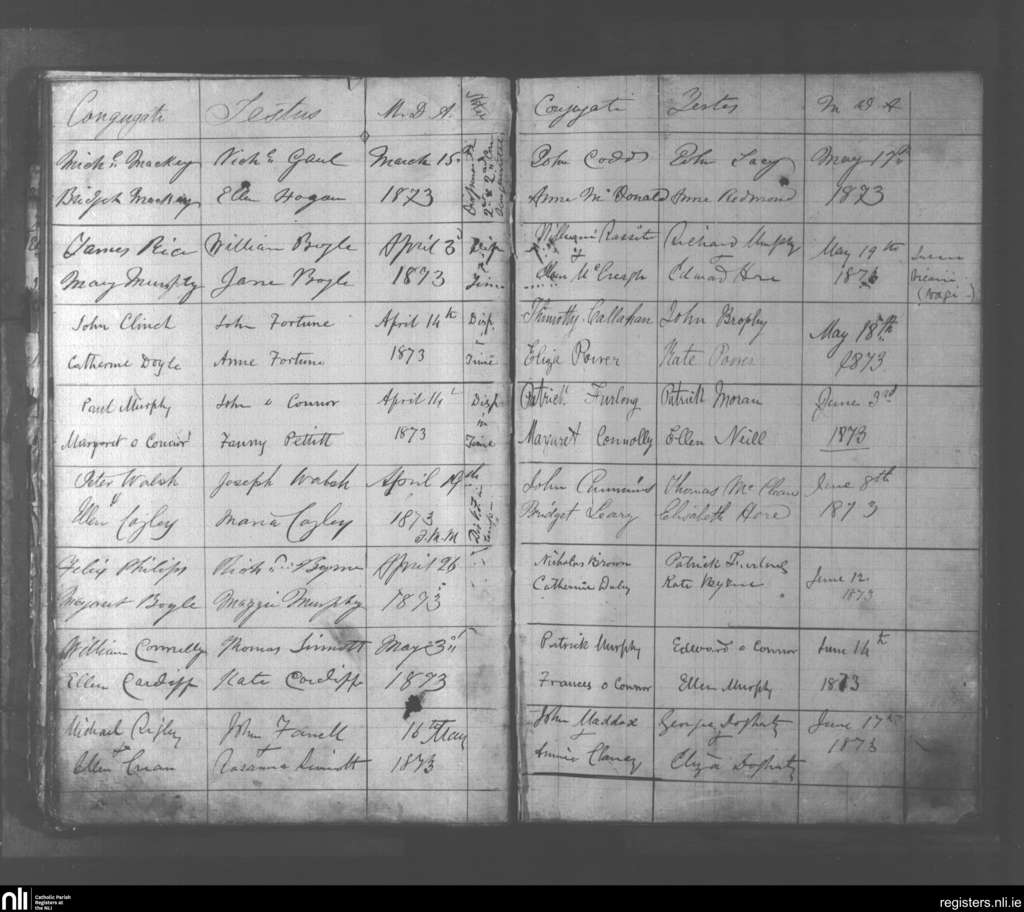 Conjugati Testus M. D. A.
Mich.l Mackey Nich.s Gaul March 15
Bridget Mackey Ellen Hogan 1873
James Rice William Boyle April 3 Disp.
Mary Murphy Jane Boyle 1873 Time
John Clinch John Fortune April 14th Disp.
Catherine Doyle Anne Fortune 1873 Time
Paul Murphy John o Connor April 14 Disp in
Margaret o Connor Fanny Pettitt 1873 Time
Peter Walsh Joseph Walsh April 19th
Ellen Cogley Maria Cogley 1873
Felix Philips Rich.d Byrne April 26
Margaret Boyle Maggie Murphy 1873
William Connolly Thomas Sinnott May 3
Ellen Cardiff Kate Cardiff 1873
Michael John Farrell 16th May
Ellen Rosanna Sinnott 1873
Conjugati Testes M D A
John Codd John Lacy May 17th
Anne Mc Donald Anne Redmond 1873
Richard Murphy May 19th
Edward Hore 1873
Timothy Callahan John Brophy May 18th
Eliza Power Kate Power 1873
Patrick Furlong Patrick Moran June 3rd
Margaret Connolly Ellen Neill 1873
John Cummins Thomas Mc June 8th
Bridget Leary Elisabeth Hore 1873
Nicholas Brown Patrick Furlong June 12
Catherine Daly Kate 1873
Patrick Murphy Edward o Connor June 14th
Frances o Connor Ellen Murphy 1873
John Maddox George Dogharty June 17th
Annie Clancy Eliza Dogharty 1873
nli Catholic Parish
Registers at
the NLI
registers.nli.ie